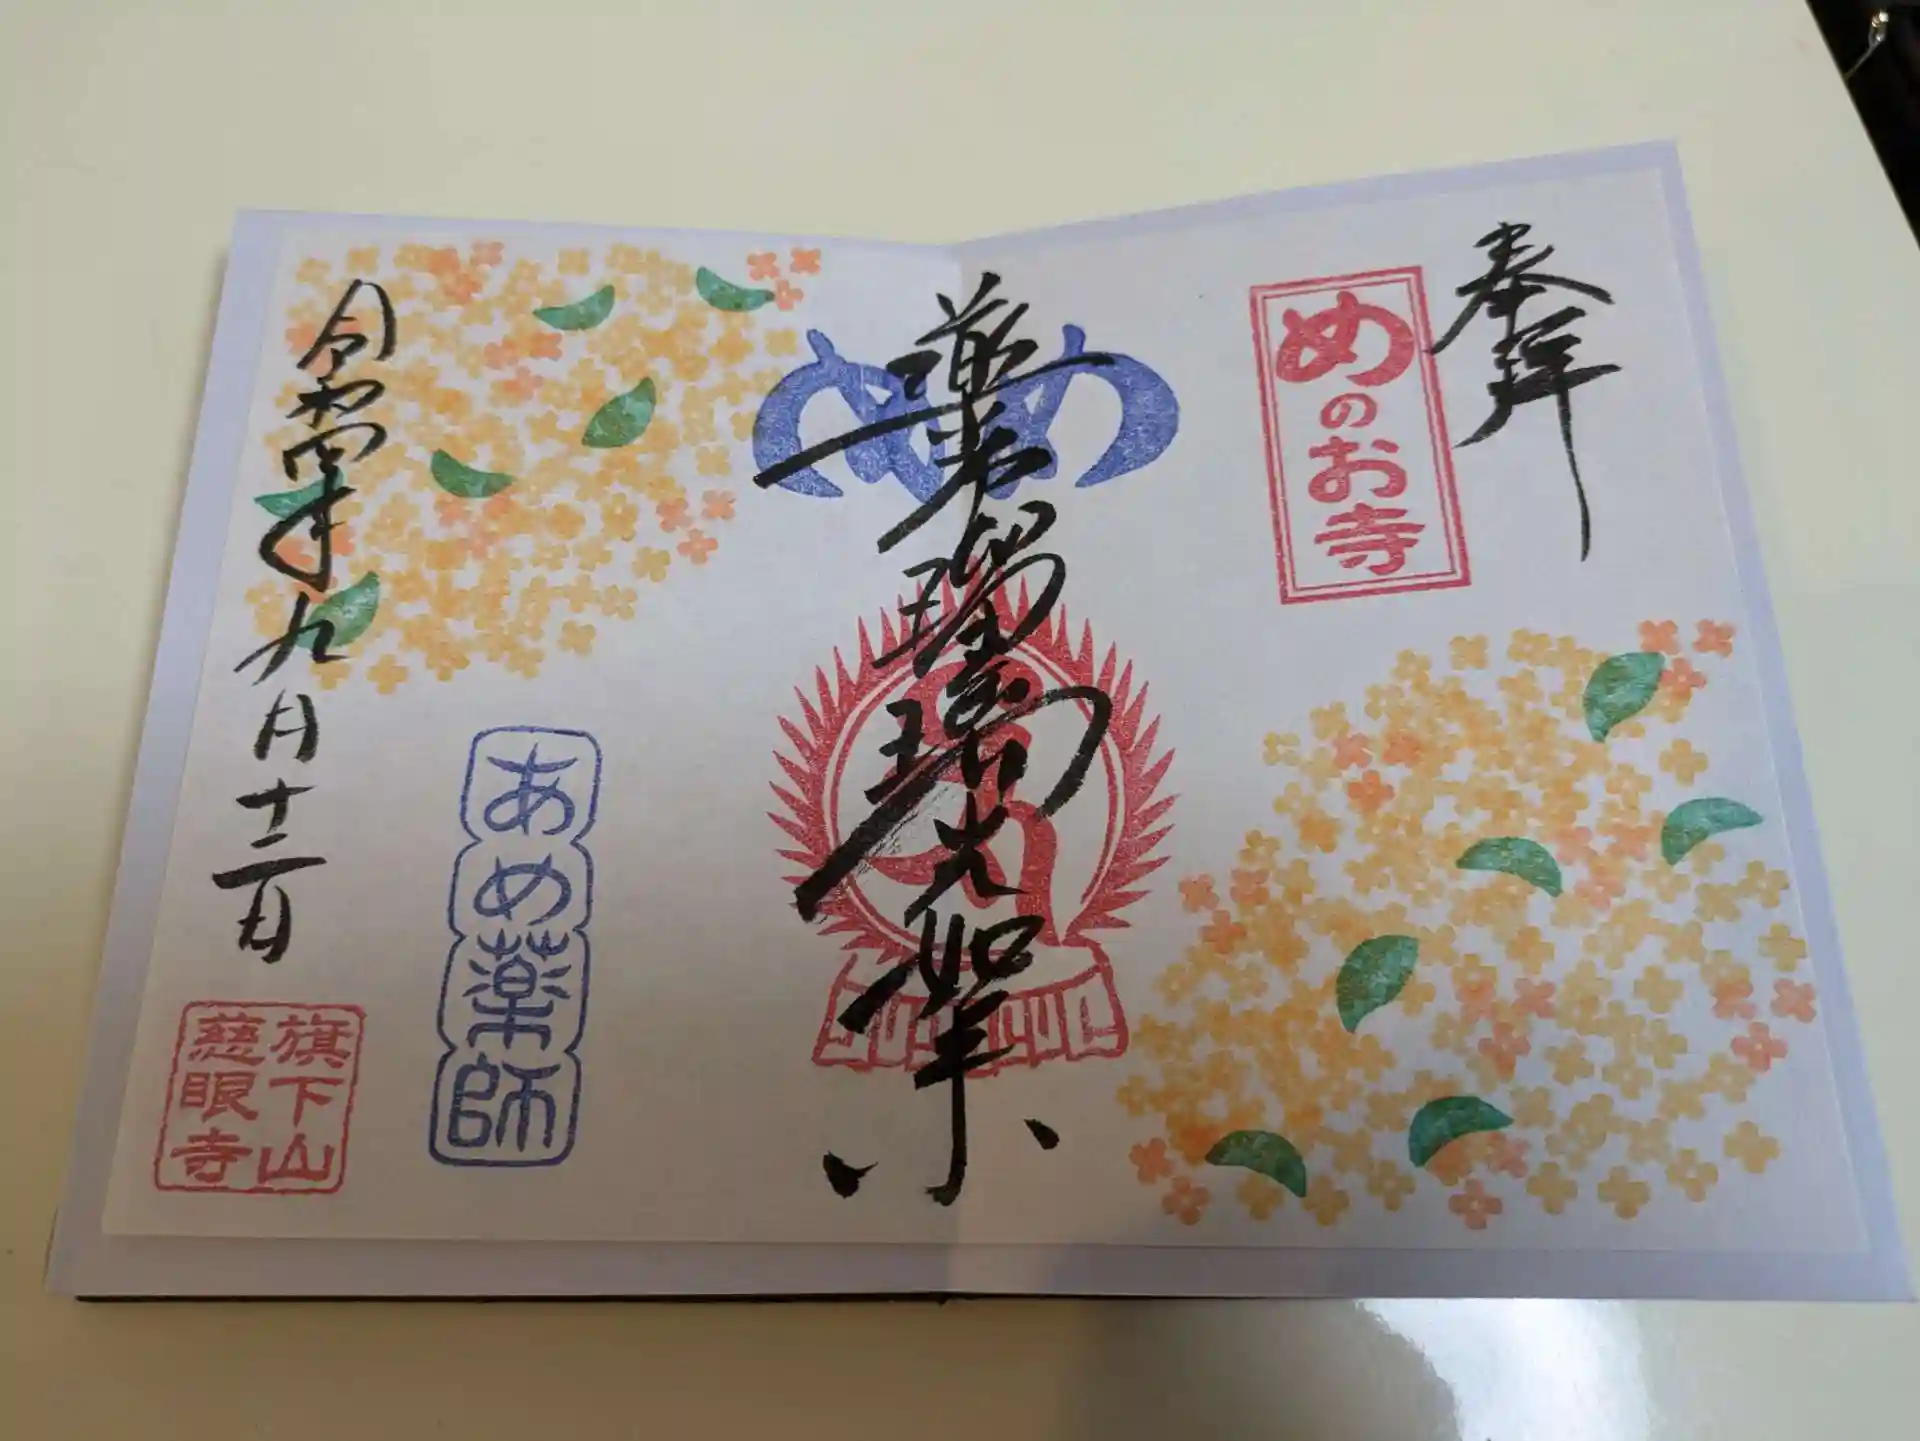 奉拝
めのお寺
め
薬師瑠璃光如来
あめ薬師
令和四年九月十二日
旗下山
慈眼寺